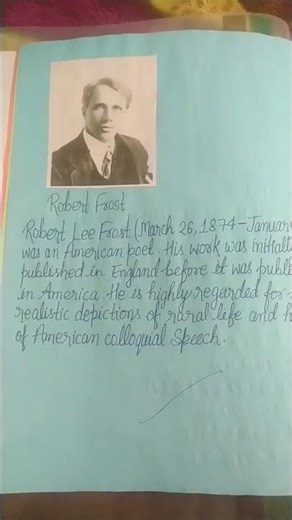 Robert Frost
Robert Lee Frost (March 26, 1874-Januar
was an American poet. His work was initiall
published in England before it was publi
in America. He is highly regarded for
realistic depictions of rural life and h
of American colloquial Speech.